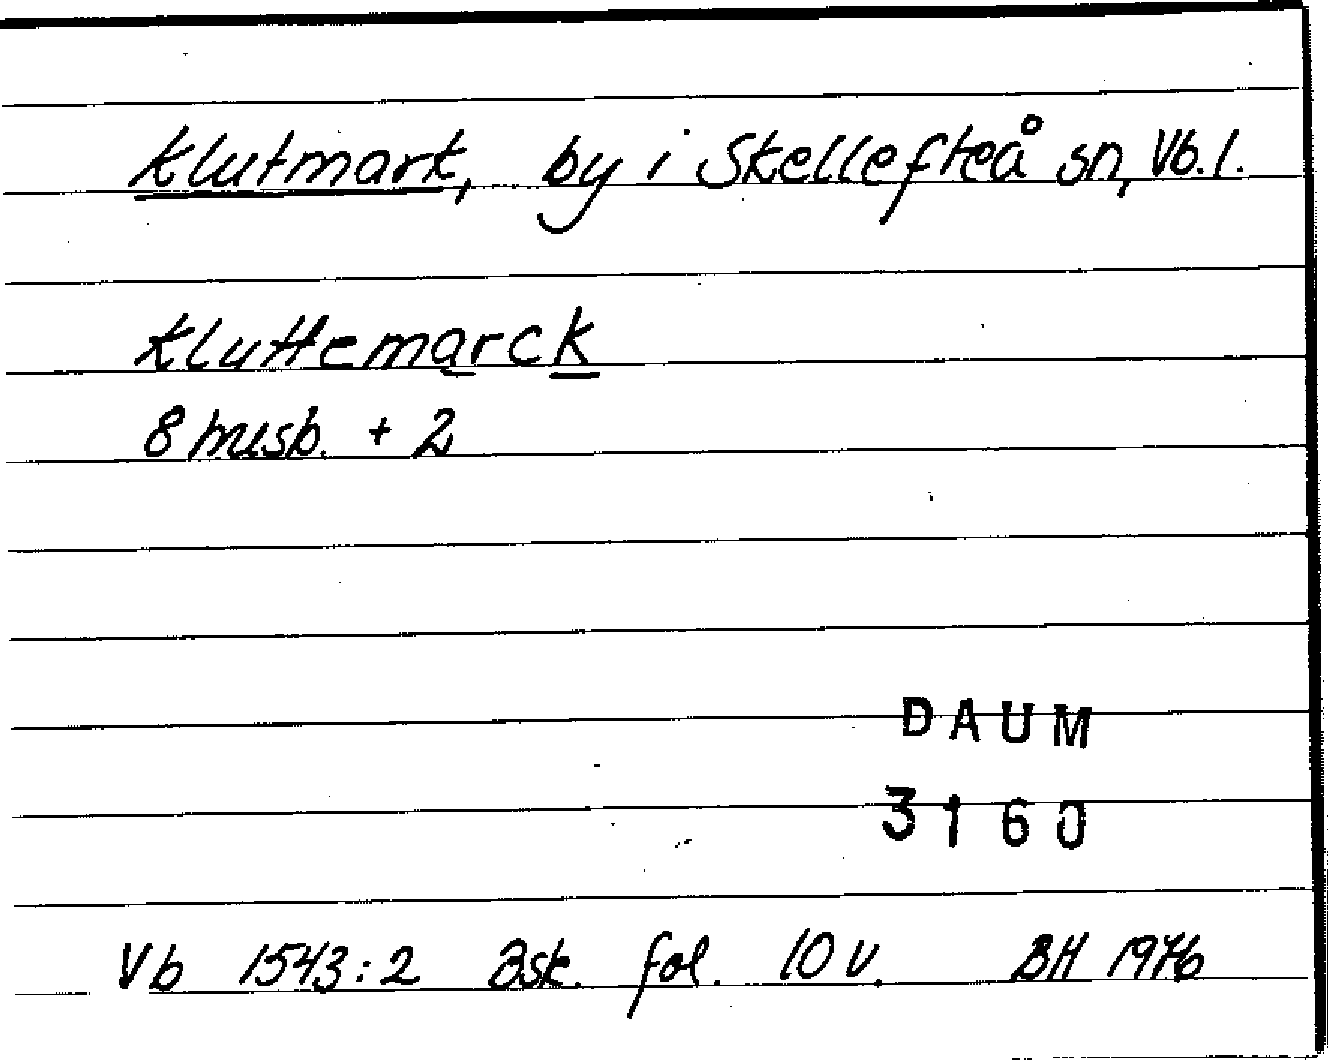 Klutmark, by i Skellefteå sn, Vb. l.
Kluttemarck
8 husb. + 2
DAUM
3160
Vb 1543:2 Bsk. fol. 10 v. BH 1976